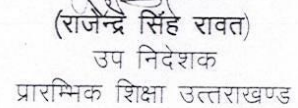 (राजेन्द्र सिंह रावत)
उप निदेशक
प्रारम्भिक शिक्षा उत्तराखण्ड